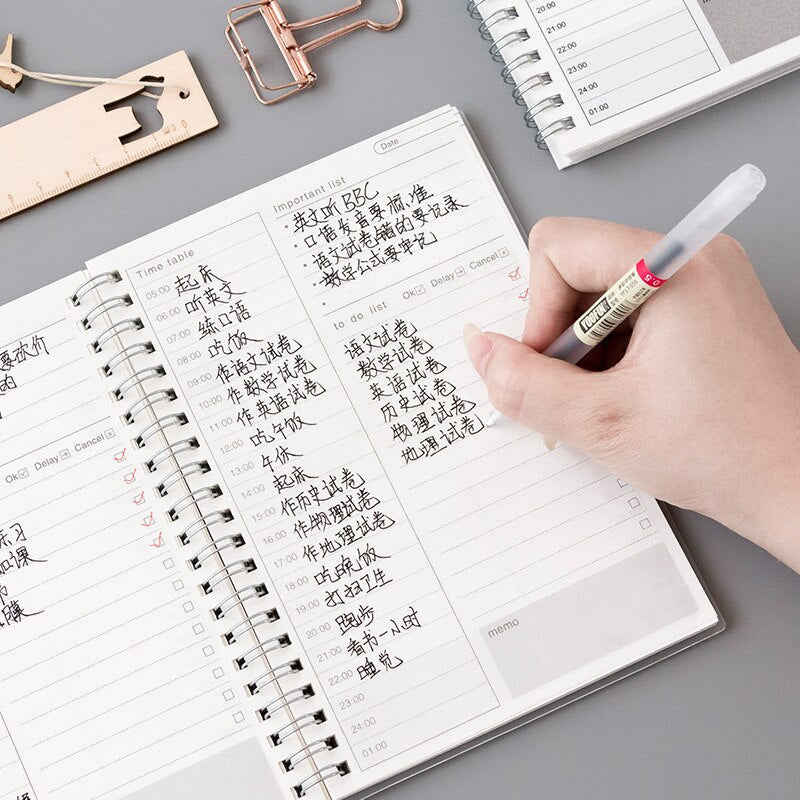 20:00
21:00
22:00
23:00
24:00
01:00
0cm 1 2 3 4 5 6
Date
Important list
英文听BBC
口语发音要标准
语文试卷错的要记录
数学公式要牢记
Time table
05:00 起床
06:00 听英文
07:00 练口语
08:00 吃饭
09:00 作语文试卷
10:00 作数学试卷
11:00 作英语试卷
12:00 吃午饭
13:00 午休
14:00 起床
15:00 作历史试卷
16:00 作物理试卷
17:00 作地理试卷
18:00 吃晚饭
19:00 打扫卫生
20:00 跑步
21:00 看书一小时
22:00 睡觉
23:00
24:00
01:00
to do list Ok Delay Cancel
语文试卷
数学试卷
英语试卷
历史试卷
物理试卷
地理试卷
memo
0.5
要砍价
的
Ok Delay Cancel
练习
加课
膜